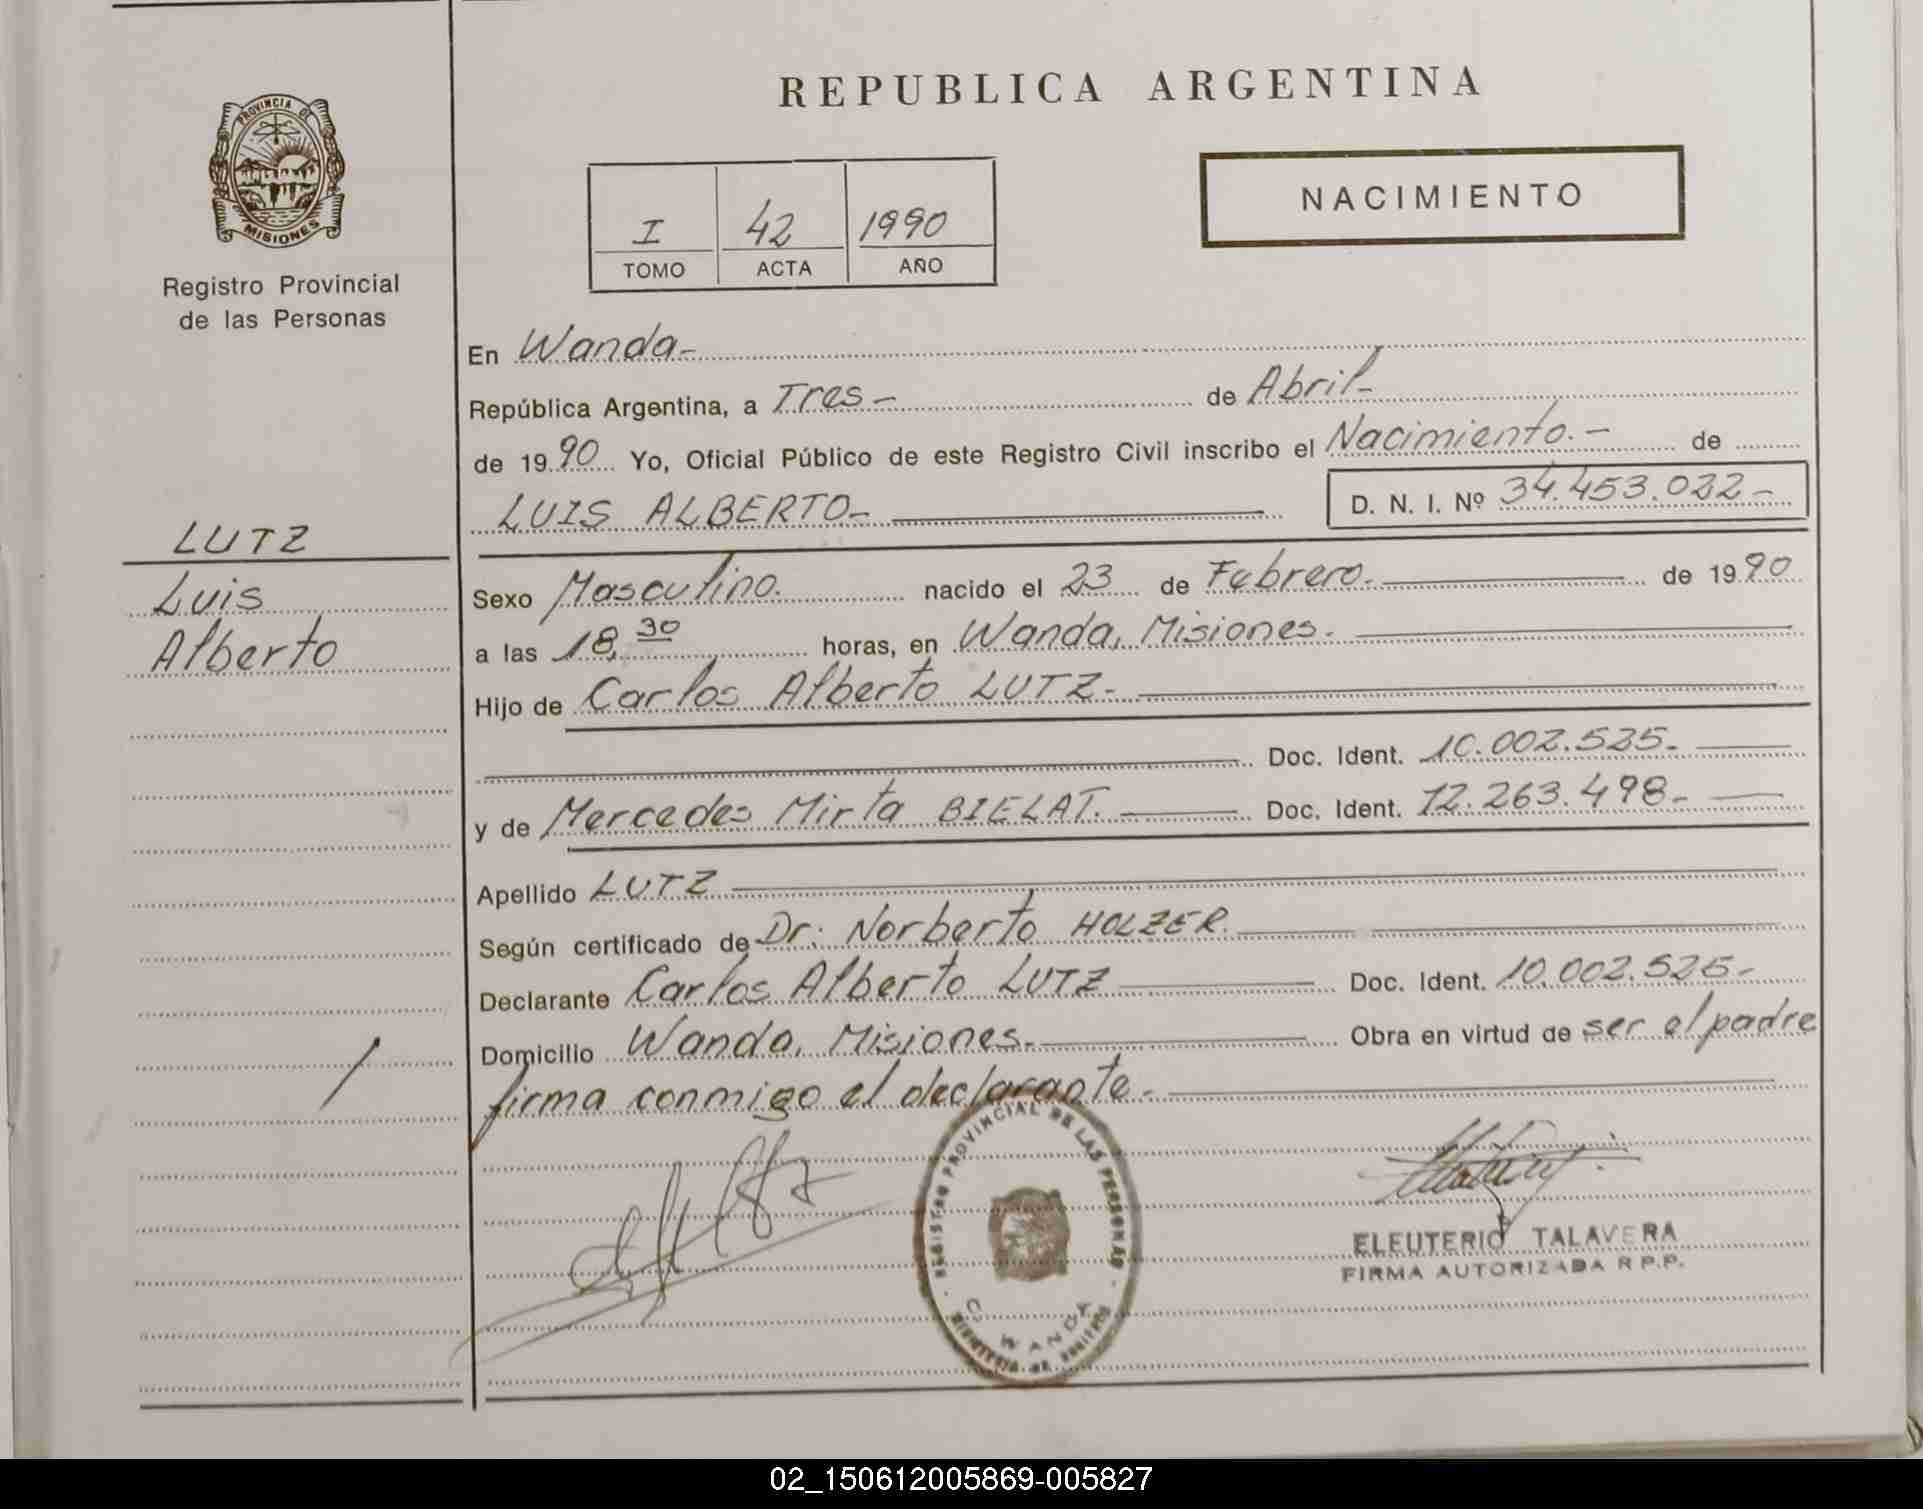 REPUBLICA ARGENTINA
PROVINCIA DE
MISIONES
Registro Provincial
de las Personas
NACIMIENTO
I 42 1990
TOMO ACTA AÑO
En Wanda-
República Argentina, a Tres- de Abril-
de 1990 Yo, Oficial Público de este Registro Civil inscribo el Nacimiento.- de
LUIS ALBERTO- D. N. I. Nº 34.453.022-
LUTZ
Luis
Alberto
Sexo Masculino. nacido el 23 de Febrero.- de 1990
a las 18,30 horas, en Wanda, Misiones.-
Hijo de Carlos Alberto LUTZ.-
Doc. Ident. 10.002.525.-
y de Mercedes Mirta BIELAT.- Doc. Ident. 12.263.498.-
Apellido LUTZ
Según certificado de Dr: Norberto HOLZER.
Declarante Carlos Alberto LUTZ Doc. Ident. 10.002.525.-
Domicilio Wanda, Misiones.- Obra en virtud de ser el padre
firma conmigo el declarante.-
REGISTRO PROVINCIAL DE LAS PERSONAS
WANDA
ELEUTERIO TALAVERA
FIRMA AUTORIZADA R.P.P.
02_150612005869-005827